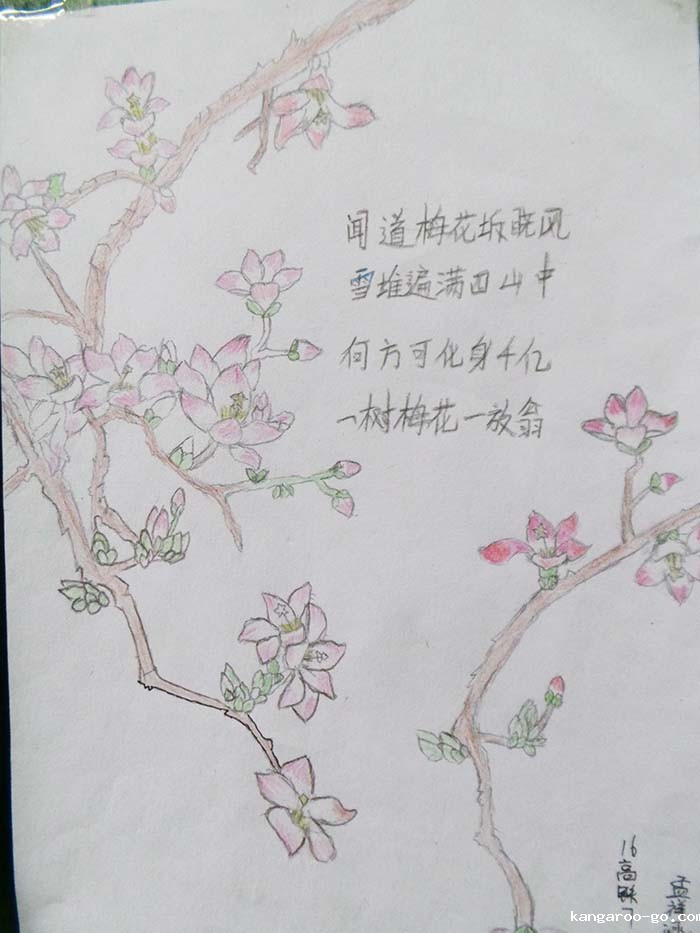 闻道梅花坼晓风
雪堆遍满四山中
何方可化身千亿
一树梅花一放翁
16高
孟祥
kangaroo-go.com